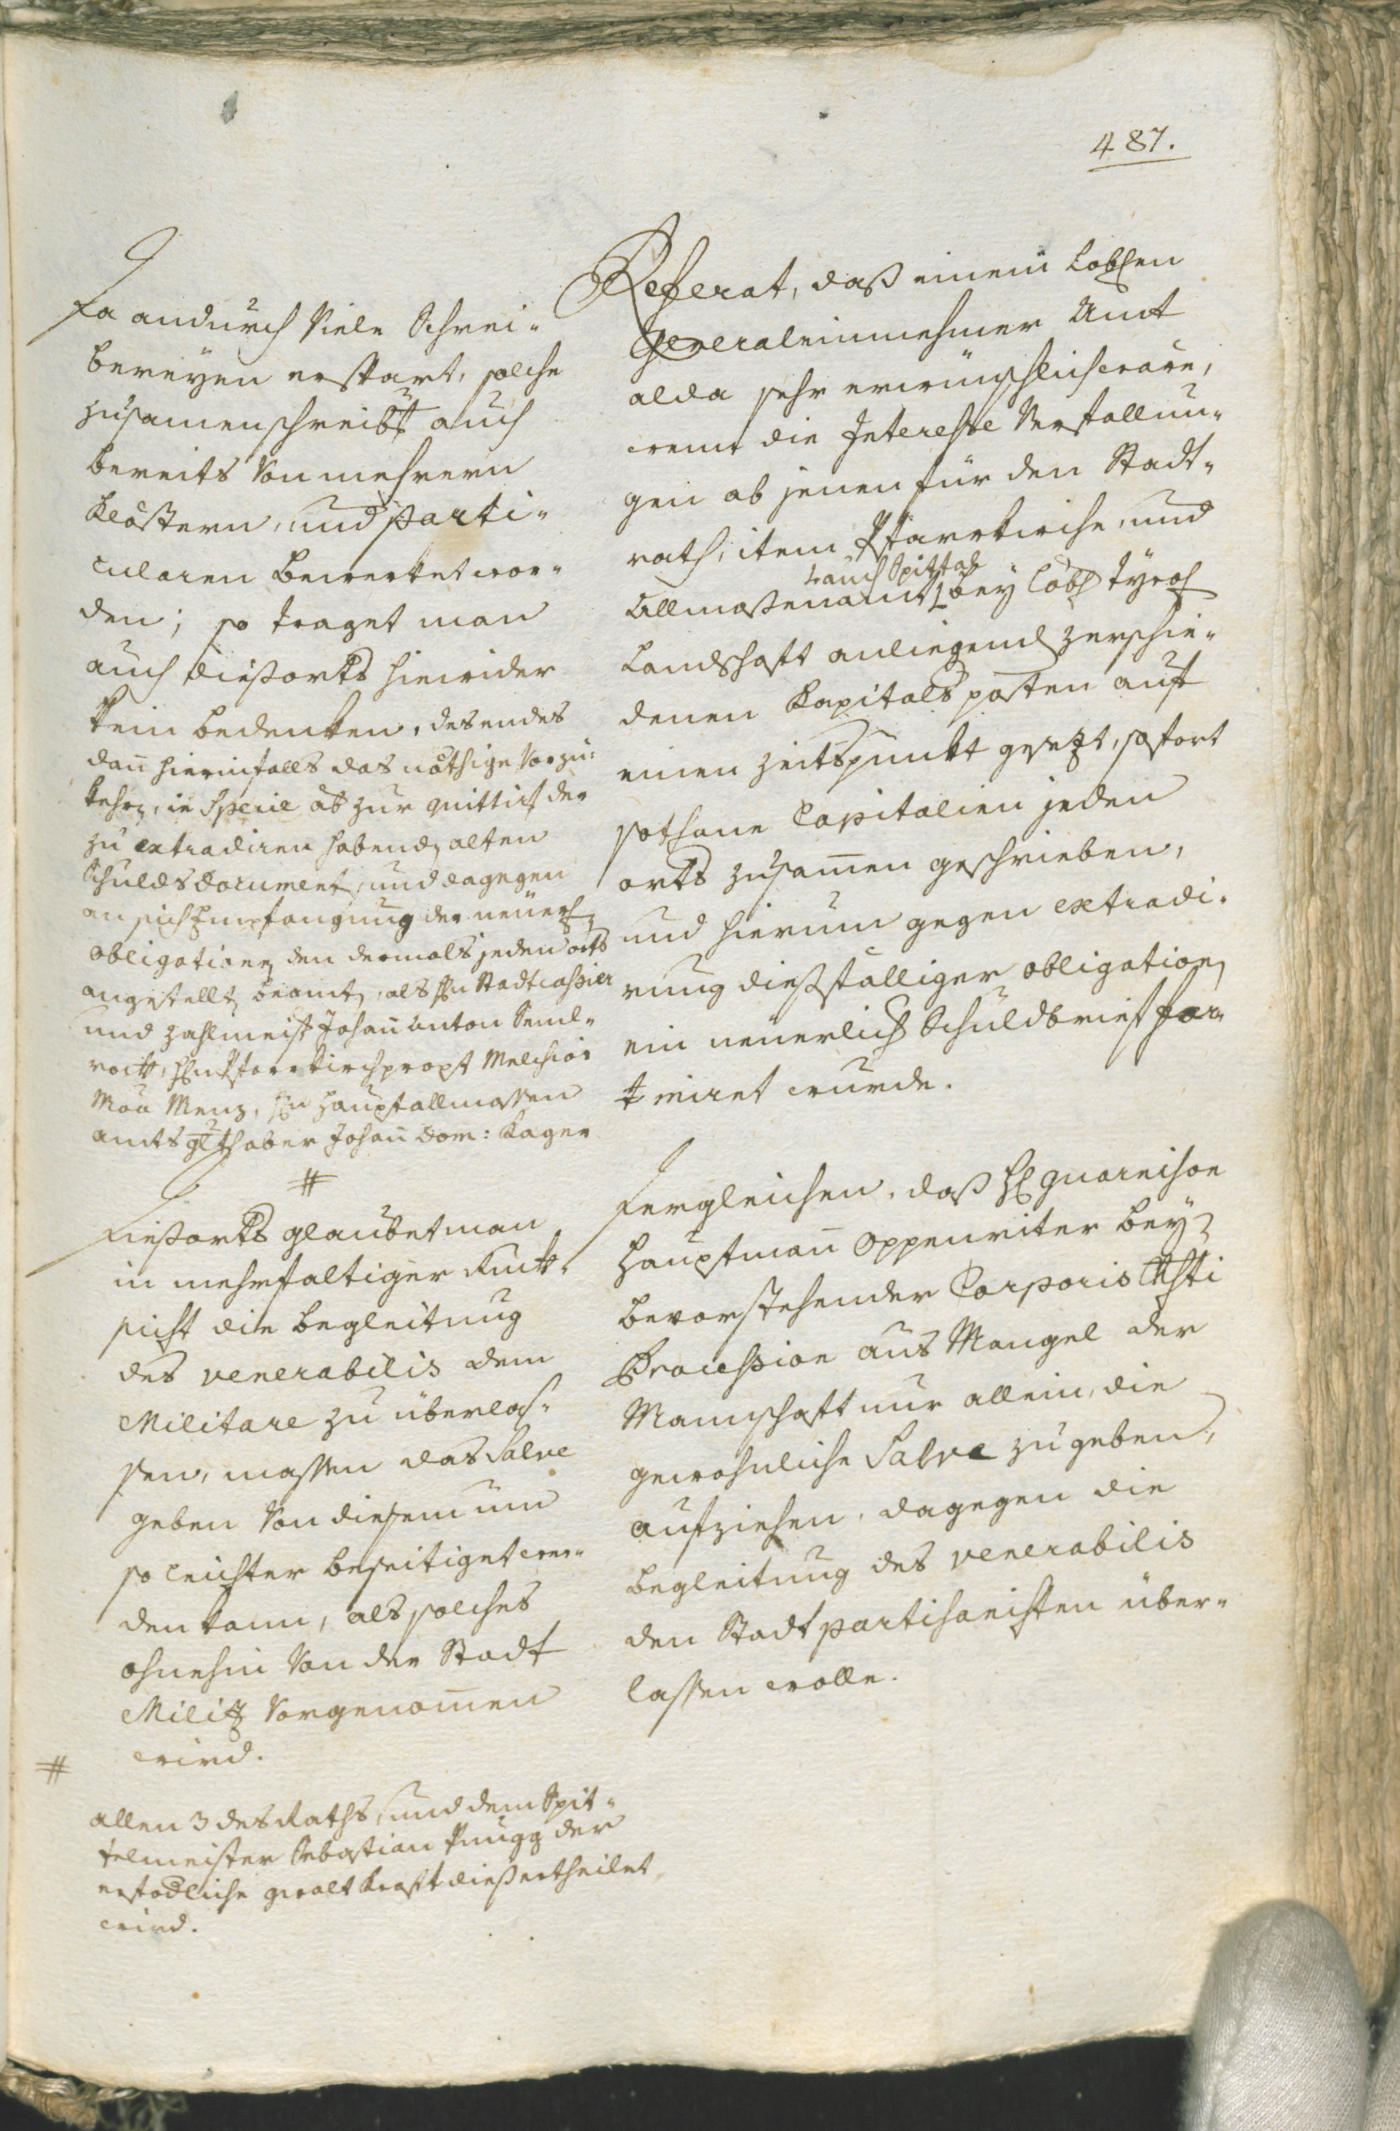 487.
Referat, daß einem Lobl[ichen]
Generaleinnehmer Amt
alda sehr erwünschlich wäre,
wenn die Interesse Verfallun-
gen ab jenen für den Stadt-
rath, item Pfarrkirche, und
auch Spittal
Allmosenamt bey Löbl. Tyrol.
Landschaft anliegend zerschie-
denen Kapitals posten auf
einen Zeitspunkt gesezt, sofort
sothane Capitalien jeden
orts zusamen geschrieben,
und hierum gegen extradi-
rung dießfälliger obligationen
ein neuerlich Schuldbrief for-
miret wurde.
Da andurch viele Schrei-
bereyen erspart, solche
zusamenschreibung auch
bereits von mehreren
Klöstern, und parti-
cularen bewerket wor-
den; so traget man
auch dießorts hierwider
kein bedenken, des endes
dan hierinfalls das nöthige vorzu-
kehren, in Specie ab zur quittir der
zu extradiren habenden alten
Schulds document, und dagegen
an sich Empfangung der neüen
obligationen den dermals jeden orts
angestellt beamten, als Hn Stadtcassier
und Zahlmeister Johan Anton
Hn Pfarrkirchpropst Melchior
Menz, Hn Hauptallmosen
amts gwalthaber Johan Dom: Kager
#
Dergleichen, daß H. guarnison
Hauptman Oppenriter bey
bevorstehender Corporis Xsti
Procession aus Mangel der
Mannschaft nur allein, die
gewohnliche Salve zu geben,
aufziehen, dagegen die
begleitung des venerabilis
den Stadt partisanisten über-
lassen wolle.
Dießorts glaubet man
in mehrfaltiger Ruck-
sicht die begleitung
des venerabilis dem
Militare zu überlas-
sen, massen das Salve
geben von diesem um
so leichter beseitiget wer-
den kann, als solches
ohnehin von der Stadt
Militz vorgenomen
wird.
#
allen 3 des Raths, und dem Spit-
telmeister Sebastian der
gwalt Kraft dieß ertheilet
wird.